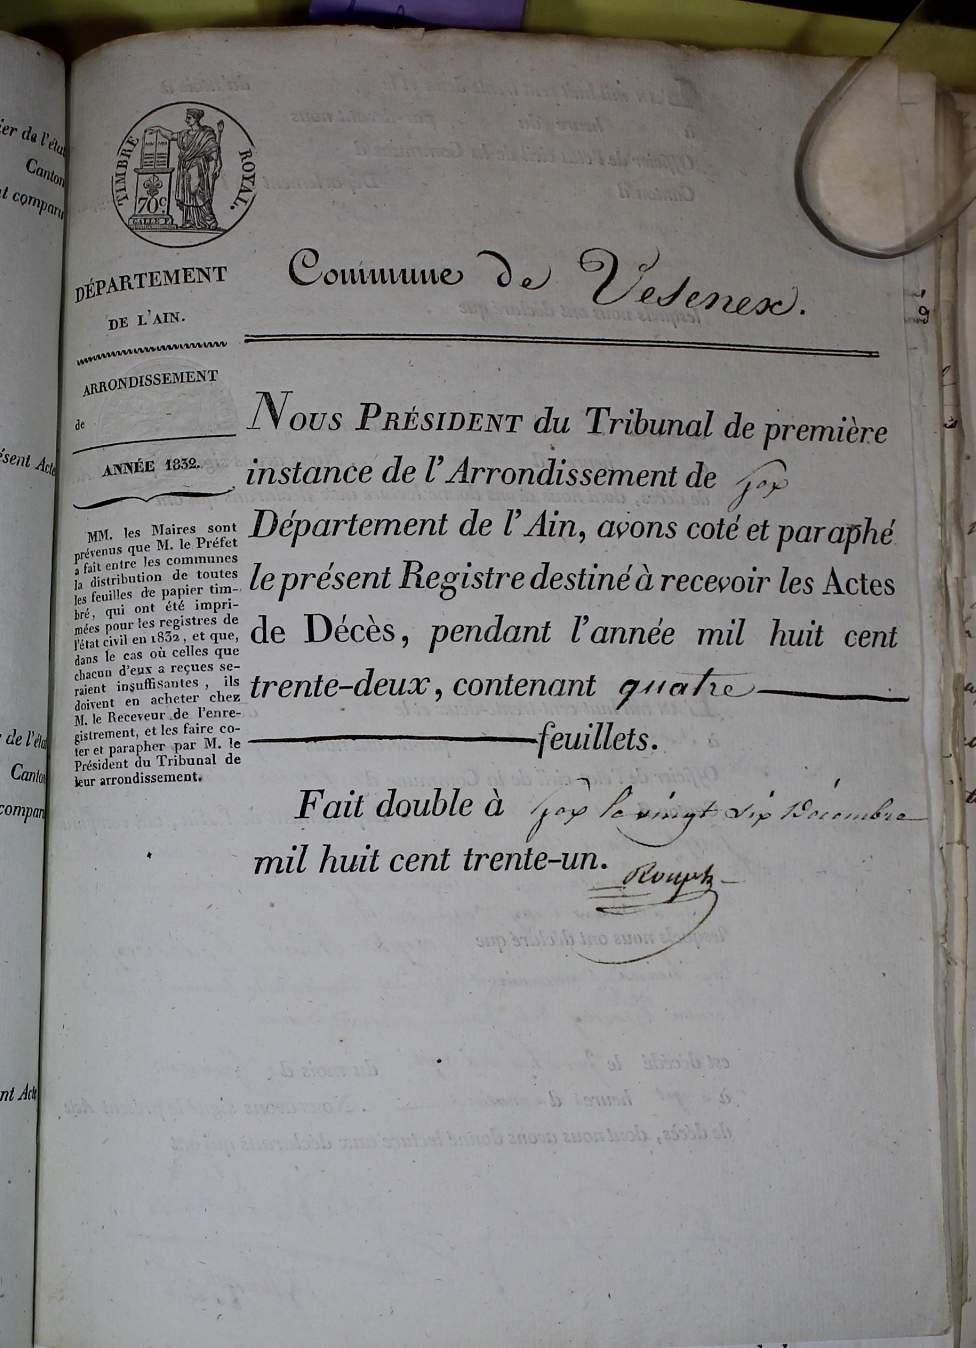 TIMBRE ROYAL.
70c.
DÉPARTEMENT
DE L'AIN.
ARRONDISSEMENT
de
ANNÉE 1832.
MM. les Maires sont
prévenus que M. le Préfet
a fait entre les communes
la distribution de toutes
les feuilles de papier tim-
bré, qui ont été impri-
mées pour les registres de
l'état civil en 1832, et que,
dans le cas où celles que
chacun d'eux a reçues se-
raient insuffisantes, ils
doivent en acheter chez
M. le Receveur de l'enre-
gistrement, et les faire co-
ter et parapher par M. le
Président du Tribunal de
leur arrondissement.
Commune de Vesenex.
NOUS PRÉSIDENT du Tribunal de première
instance de l'Arrondissement de Gex
Département de l'Ain, avons coté et paraphé
le présent Registre destiné à recevoir les Actes
de Décès, pendant l'année mil huit cent
trente-deux, contenant quatre
feuillets.
Fait double à Gex le vingt six Décembre
mil huit cent trente-un.
ier de l'état
Canton
t comparu
ésent Acte
de l'état
Canton
compar
nt Acte